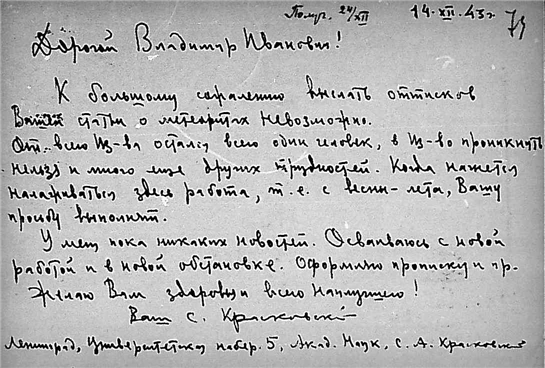 Получ. 24/XII
14.XII.43 г.
Дорогой Владимир Иванович!
К большому сожалению выслать оттисков
Вашей статьи о метеоритах невозможно.
От всего Из-ва остался всего один человек, в Из-во проникнуть
нельзя и много еще других трудностей. Когда начнет
налаживаться здесь работа, т.е. с весны-лета, Вашу
просьбу выполнят.
У меня пока никаких новостей. Осваиваюсь с новой
работой и в новой обстановке. Оформляю прописку и пр.
Желаю Вам здоровья и всего наилучшего!
Ваш С. Красковский
Ленинград, Университетская набер. 5, Акад. Наук, С. А. Красковский